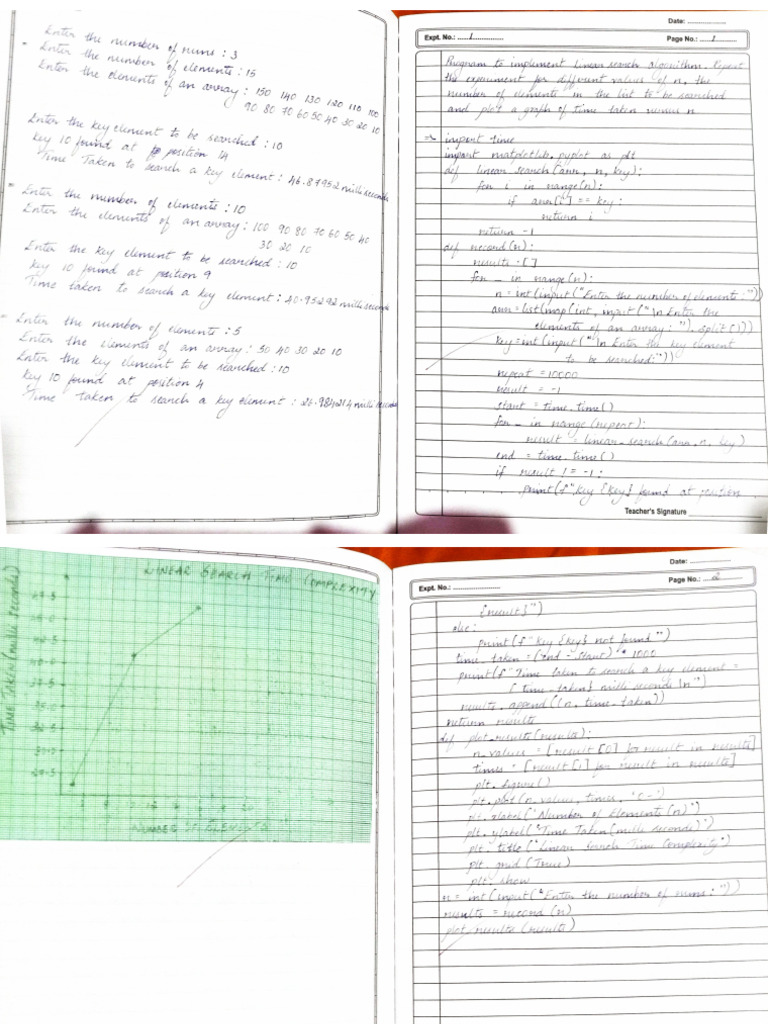 Enter the number of runs : 3
Enter the number of elements : 15
Enter the elements of an array : 150 140 130 120 110 100
90 80 70 60 50 40 30 20 10
Enter the key element to be searched : 10
key 10 found at position 14
Time Taken to search a key element : 46.87952 milliseconds
Enter the number of elements : 10
Enter the elements of an array : 100 90 80 70 60 50 40
30 20 10
Enter the key element to be searched : 10
key 10 found at position 9
Time taken to search a key element : 40.95292 milliseconds
Enter the number of elements : 5
Enter the elements of an array : 50 40 30 20 10
Enter the key element to be searched : 10
key 10 found at position 4
Time taken to search a key element : milliseconds
Date:
Expt. No.: 1
Page No.: 1
Program to implement Linear search algorithm. Repeat
the experiment for different values of n, the
number of elements in the list to be searched
and plot a graph of time taken versus n
import time
import matplotlib.pyplot as plt
def linear_search(arr, n, key):
for i in range(n):
if arr[i] == key:
return i
return -1
def record(n):
results = []
for _ in range(n):
n = int(input("Enter the number of elements :"))
arr = list(map(int, input("\n Enter the
elements of an array : ").split()))
key = int(input("\n Enter the key element
to be searched:"))
repeat = 10000
result = -1
start = time.time()
for _ in range(repeat):
result = linear_search(arr, n, key)
end = time.time()
if result != -1:
print(f"key {key} found at position
Teacher's Signature
LINEAR SEARCH TIME COMPLEXITY
TIME TAKEN (milli seconds)
NUMBER OF ELEMENTS
Date:
Expt. No.:
Page No.: 2
{result}")
else:
print(f"key {key} not found")
time_taken = (end - start) * 1000
print(f"Time taken to search a key element =
{time_taken} milli seconds \n")
results.append((n, time_taken))
return results
def plot_results(results):
n_values = [result[0] for result in results]
times = [result[1] for result in results]
plt.figure()
plt.plot(n_values, times,
plt.xlabel("Number of Elements (n)")
plt.ylabel("Time Taken (milli seconds)")
plt.title("Linear Search Time Complexity")
plt.grid(True)
plt.show
n = int(input("Enter the number of runs : "))
results = record(n)
plot_results(results)